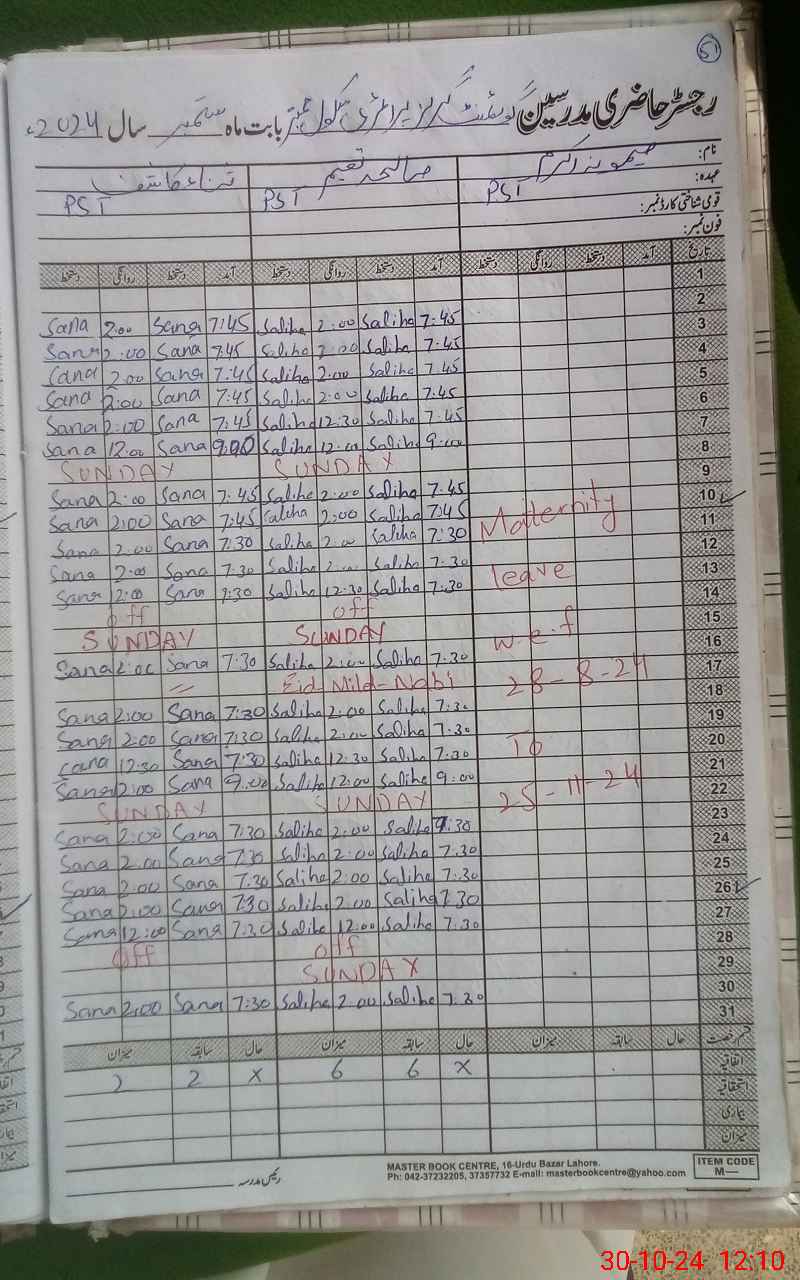 51
رجسٹر حاضری مدرسین گورنمنٹ گرلز پرائمری سکول بابت ماہ ستمبر سال 2024ء
نام: میمونہ اکرم صالحہ نعیم ثناء کاشف
عہدہ: PST PST PST
قومی شناختی کارڈ نمبر:
فون نمبر:
تاریخ آمد دستخط روانگی دستخط آمد دستخط روانگی دستخط آمد دستخط روانگی دستخط
1
Sana 2.00 Sana 7:45 Saliha 2:00 Saliha 7:45 2
Sana 2:00 Sana 7:45 Saliha 2:00 Saliha 7.45 3
Sana 2.00 Sana 7:45 Saliha 2:00 Saliha 7.45 4
Sana 2:00 Sana 7:45 Saliha 2:00 Saliha 7.45 5
Sana 2:00 Sana 7:45 Saliha 12:30 Saliha 7.45 6
Sana 12.00 Sana 9:00 Saliha 12:00 Saliha 9:00 7
SUNDAY SUNDAY 8
Sana 2:00 Sana 7:45 Saliha 2:00 Saliha 7.45 9
Sana 2:00 Sana 7:45 Saliha 2:00 Saliha 7:45 Maternity 10
Sana 2.00 Sana 7:30 Saliha 2:00 Saliha 7:30 11
Sana 2:00 Sana 7:30 Saliha 2:00 Saliha 7.30 leave 12
Sana 2:00 Sana 7:30 Saliha 12:30 Saliha 7.30 13
off off 14
SUNDAY SUNDAY w.e.f 15
Sana 2:00 Sana 7:30 Saliha 2:00 Saliha 7.30 16
〃 Eid Mild-Nabi 28-8-24 17
Sana 2:00 Sana 7:30 Saliha 2:00 Saliha 7:30 18
Sana 2:00 Sana 7:30 Saliha 2:00 Saliha 7.30 To 19
Sana 12:30 Sana 7:30 Saliha 12:30 Saliha 7:30 20
Sana 12:00 Sana 9:00 Saliha 12:00 Saliha 9:00 25-11-24 21
SUNDAY SUNDAY 22
Sana 2:00 Sana 7:30 Saliha 2:00 Saliha 7:30 23
Sana 2.00 Sana 7:30 Saliha 2:00 Saliha 7.30 24
Sana 2:00 Sana 7:30 Saliha 2:00 Saliha 7:30 25
Sana 2:00 Sana 7:30 Saliha 2:00 Saliha 7:30 26
Sana 12:00 Sana 7:30 Saliha 12:00 Saliha 7:30 27
off off 28
SUNDAY 29
Sana 2:00 Sana 7:30 Saliha 2:00 Saliha 7.30 30
31
قسم رخصت حال سابقہ میزان حال سابقہ میزان حال سابقہ میزان
اتفاقیہ X 6 6 X 2 2
استحقاقیہ
بیماری
میزان
رئیس مدرسہ
MASTER BOOK CENTRE, 16-Urdu Bazar Lahore.
Ph: 042-37232205, 37357732 E-mail: masterbookcentre@yahoo.com
ITEM CODE
M—
30-10-24 12:10